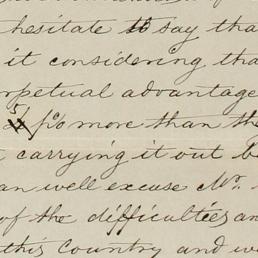 hesitate to say tha
it considering tha
rpetual advantage
is no more than the
carrying it out b
an well excuse Mr.
of the difficulties an
this Country and w